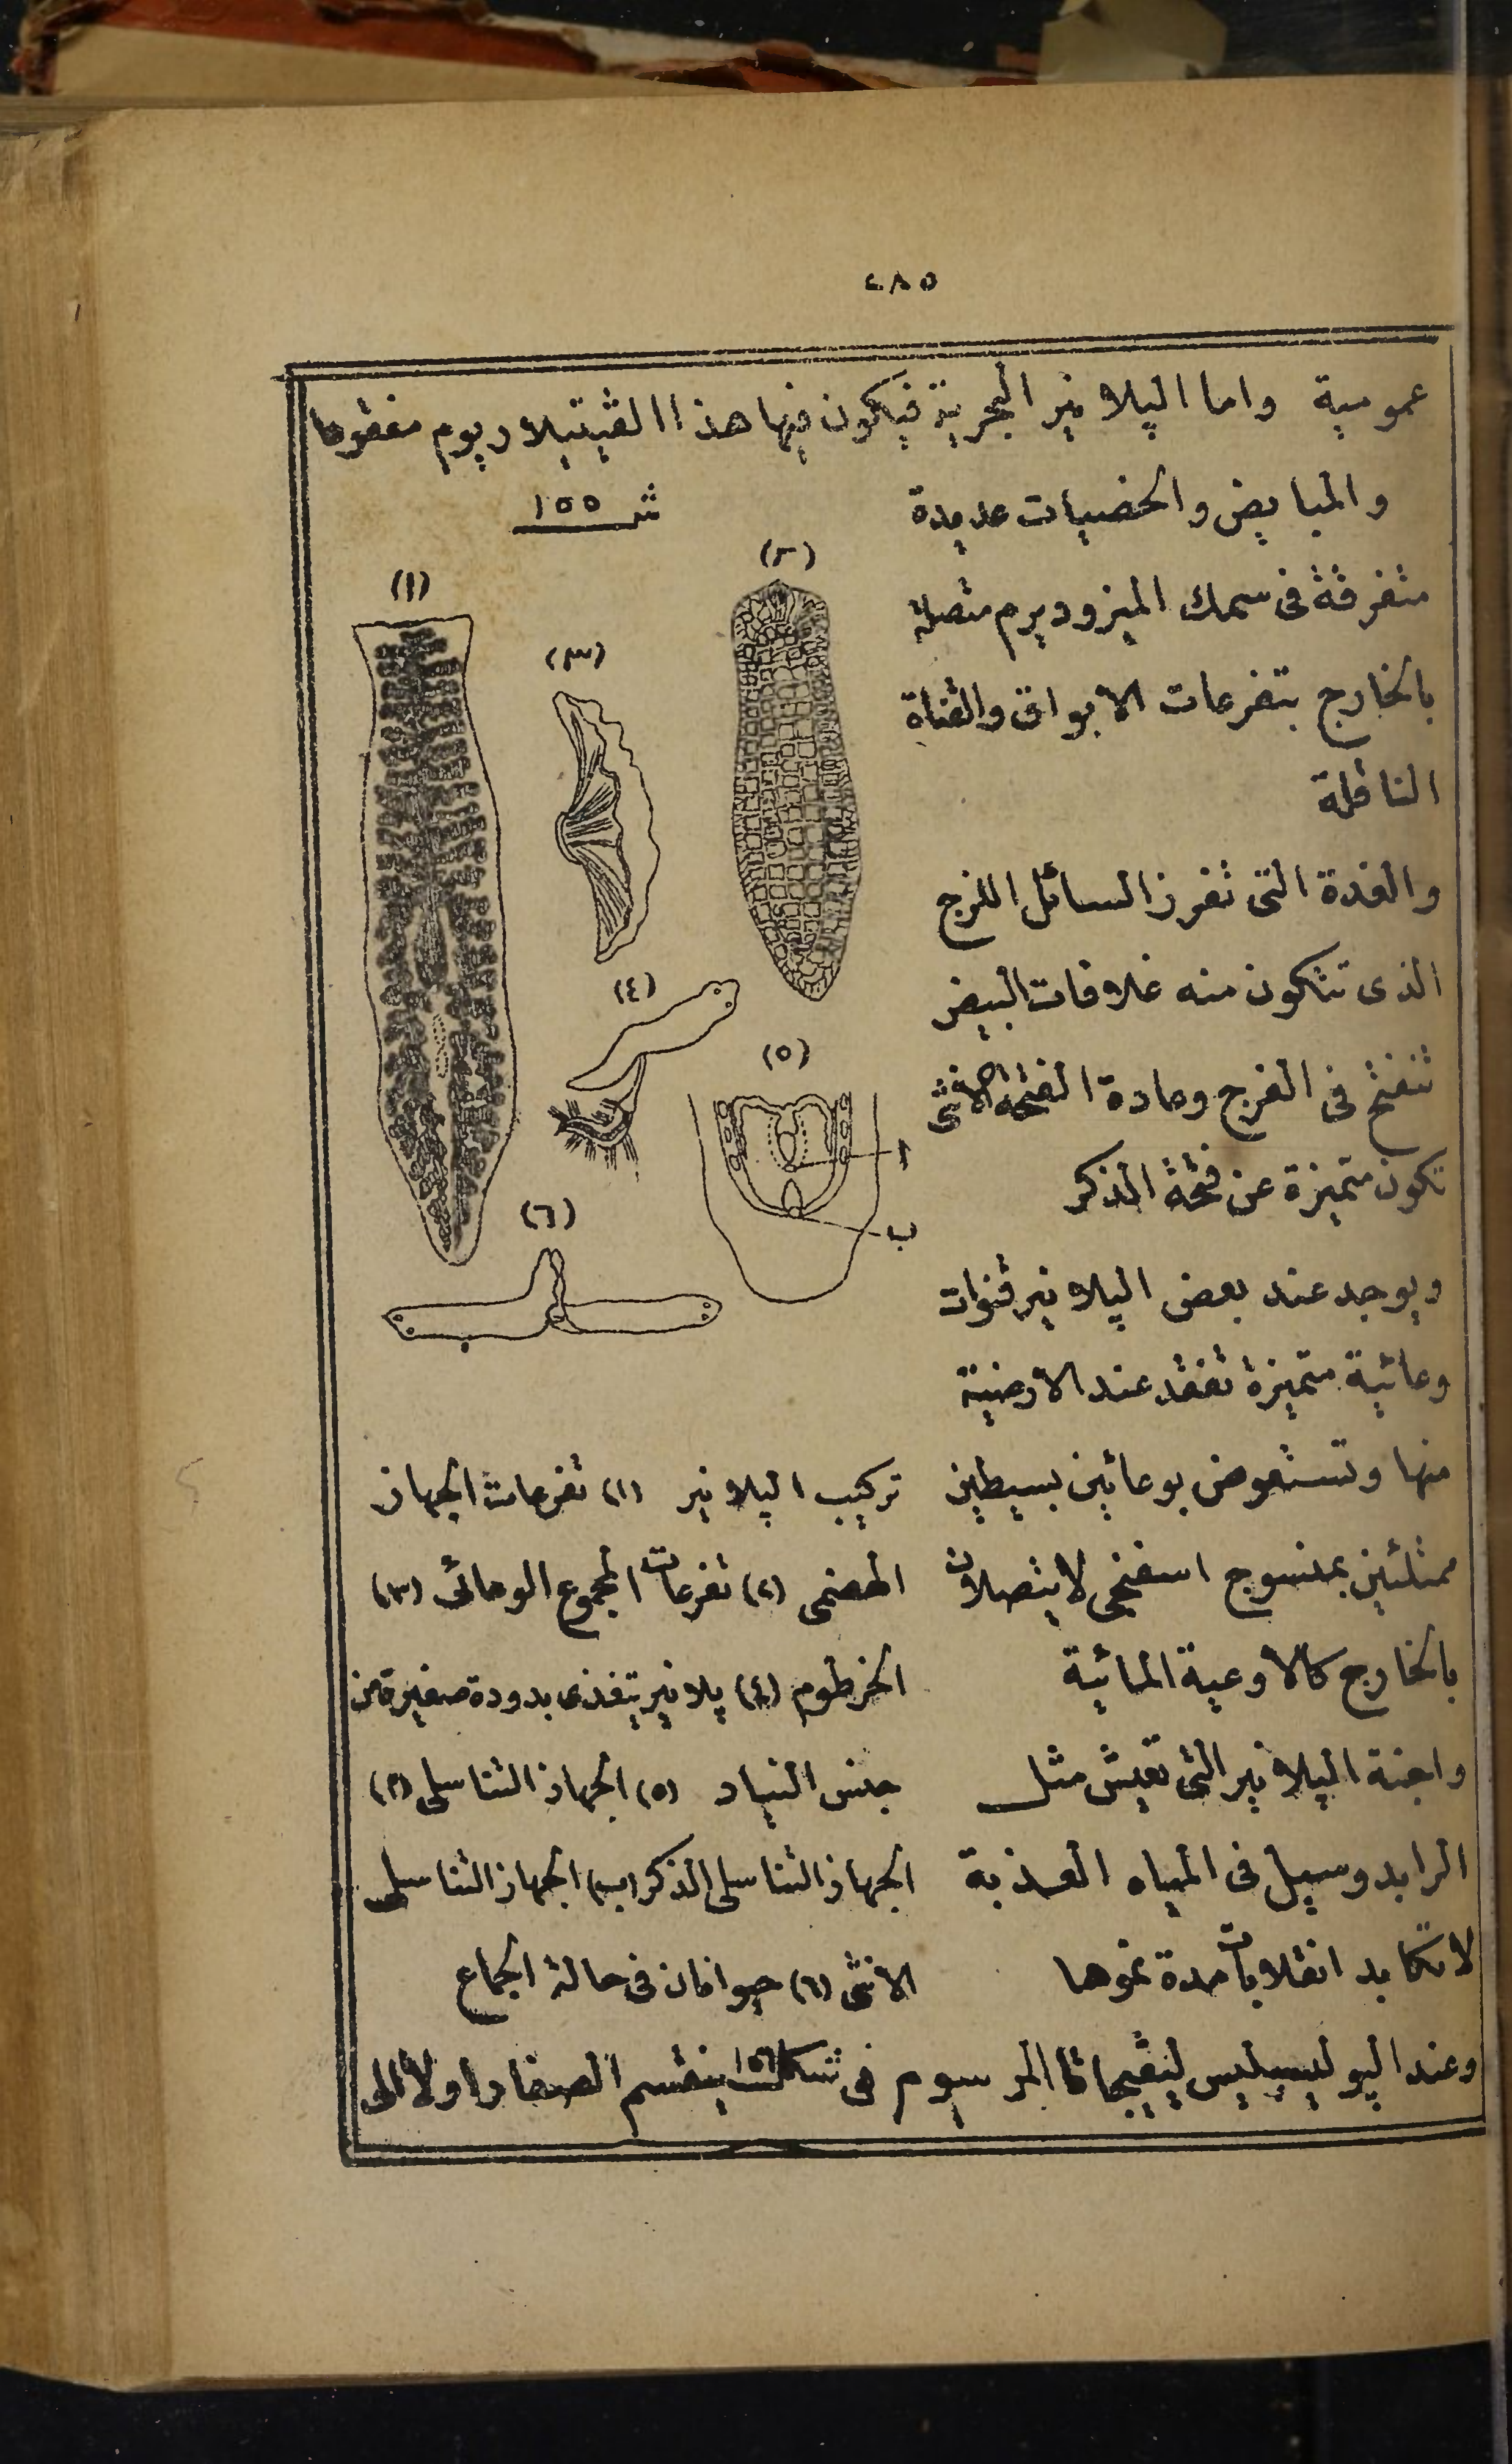 ٢٨٥
عمومية واما الپلانير البحرية فيكون فيها هذا الڤيتيلاريوم مفقودا
والمبايض والخصيات عديدة
متفرقة فى سمك الميزوديرم متصلة
بالخارج بتفرعات الابواق والقناة
الناقلة
والغدة التى تفرز السائل اللزج
الذى تتكون منه غلافات البيض
تنفتح فى الفرج وعادة الفتحة الانثى
تكون متميزة عن فتحة الذكر
ويوجد عند بعض الپلانير قنوات
وعائية متميزة تفقد عند الارضية
منها وتستعوض بوعائين بسيطين
ممتلئين بمنسوج اسفنجى لا يتصلان
بالخارج كالاوعية المائية
واجنة الپلانير التى تعيش مثل
الرابدوسيل فى المياه العذبة
لا تكابد انقلابات مدة نموها
شـ ١٥٥
(١)
(٢)
(٣)
(٤)
(٥)
ا
ب
(٦)
تركيب الپلانير (١) تفرعات الجهاز
الهضمى (٢) تفرعات المجموع الوعائى (٣)
الخرطوم (٤) پلانير يتغذى بدودة صغيرة من
جنس النياد (٥) الجهاز التناسلى (ا)
الجهاز التناسلى الذكر (ب) الجهاز التناسلى
الانثى (٦) حيوانان فى حالة الجماع
وعند الپوليسيليس المرسوم فى شكل ١٥٦ ينقسم الصفار اولا الى